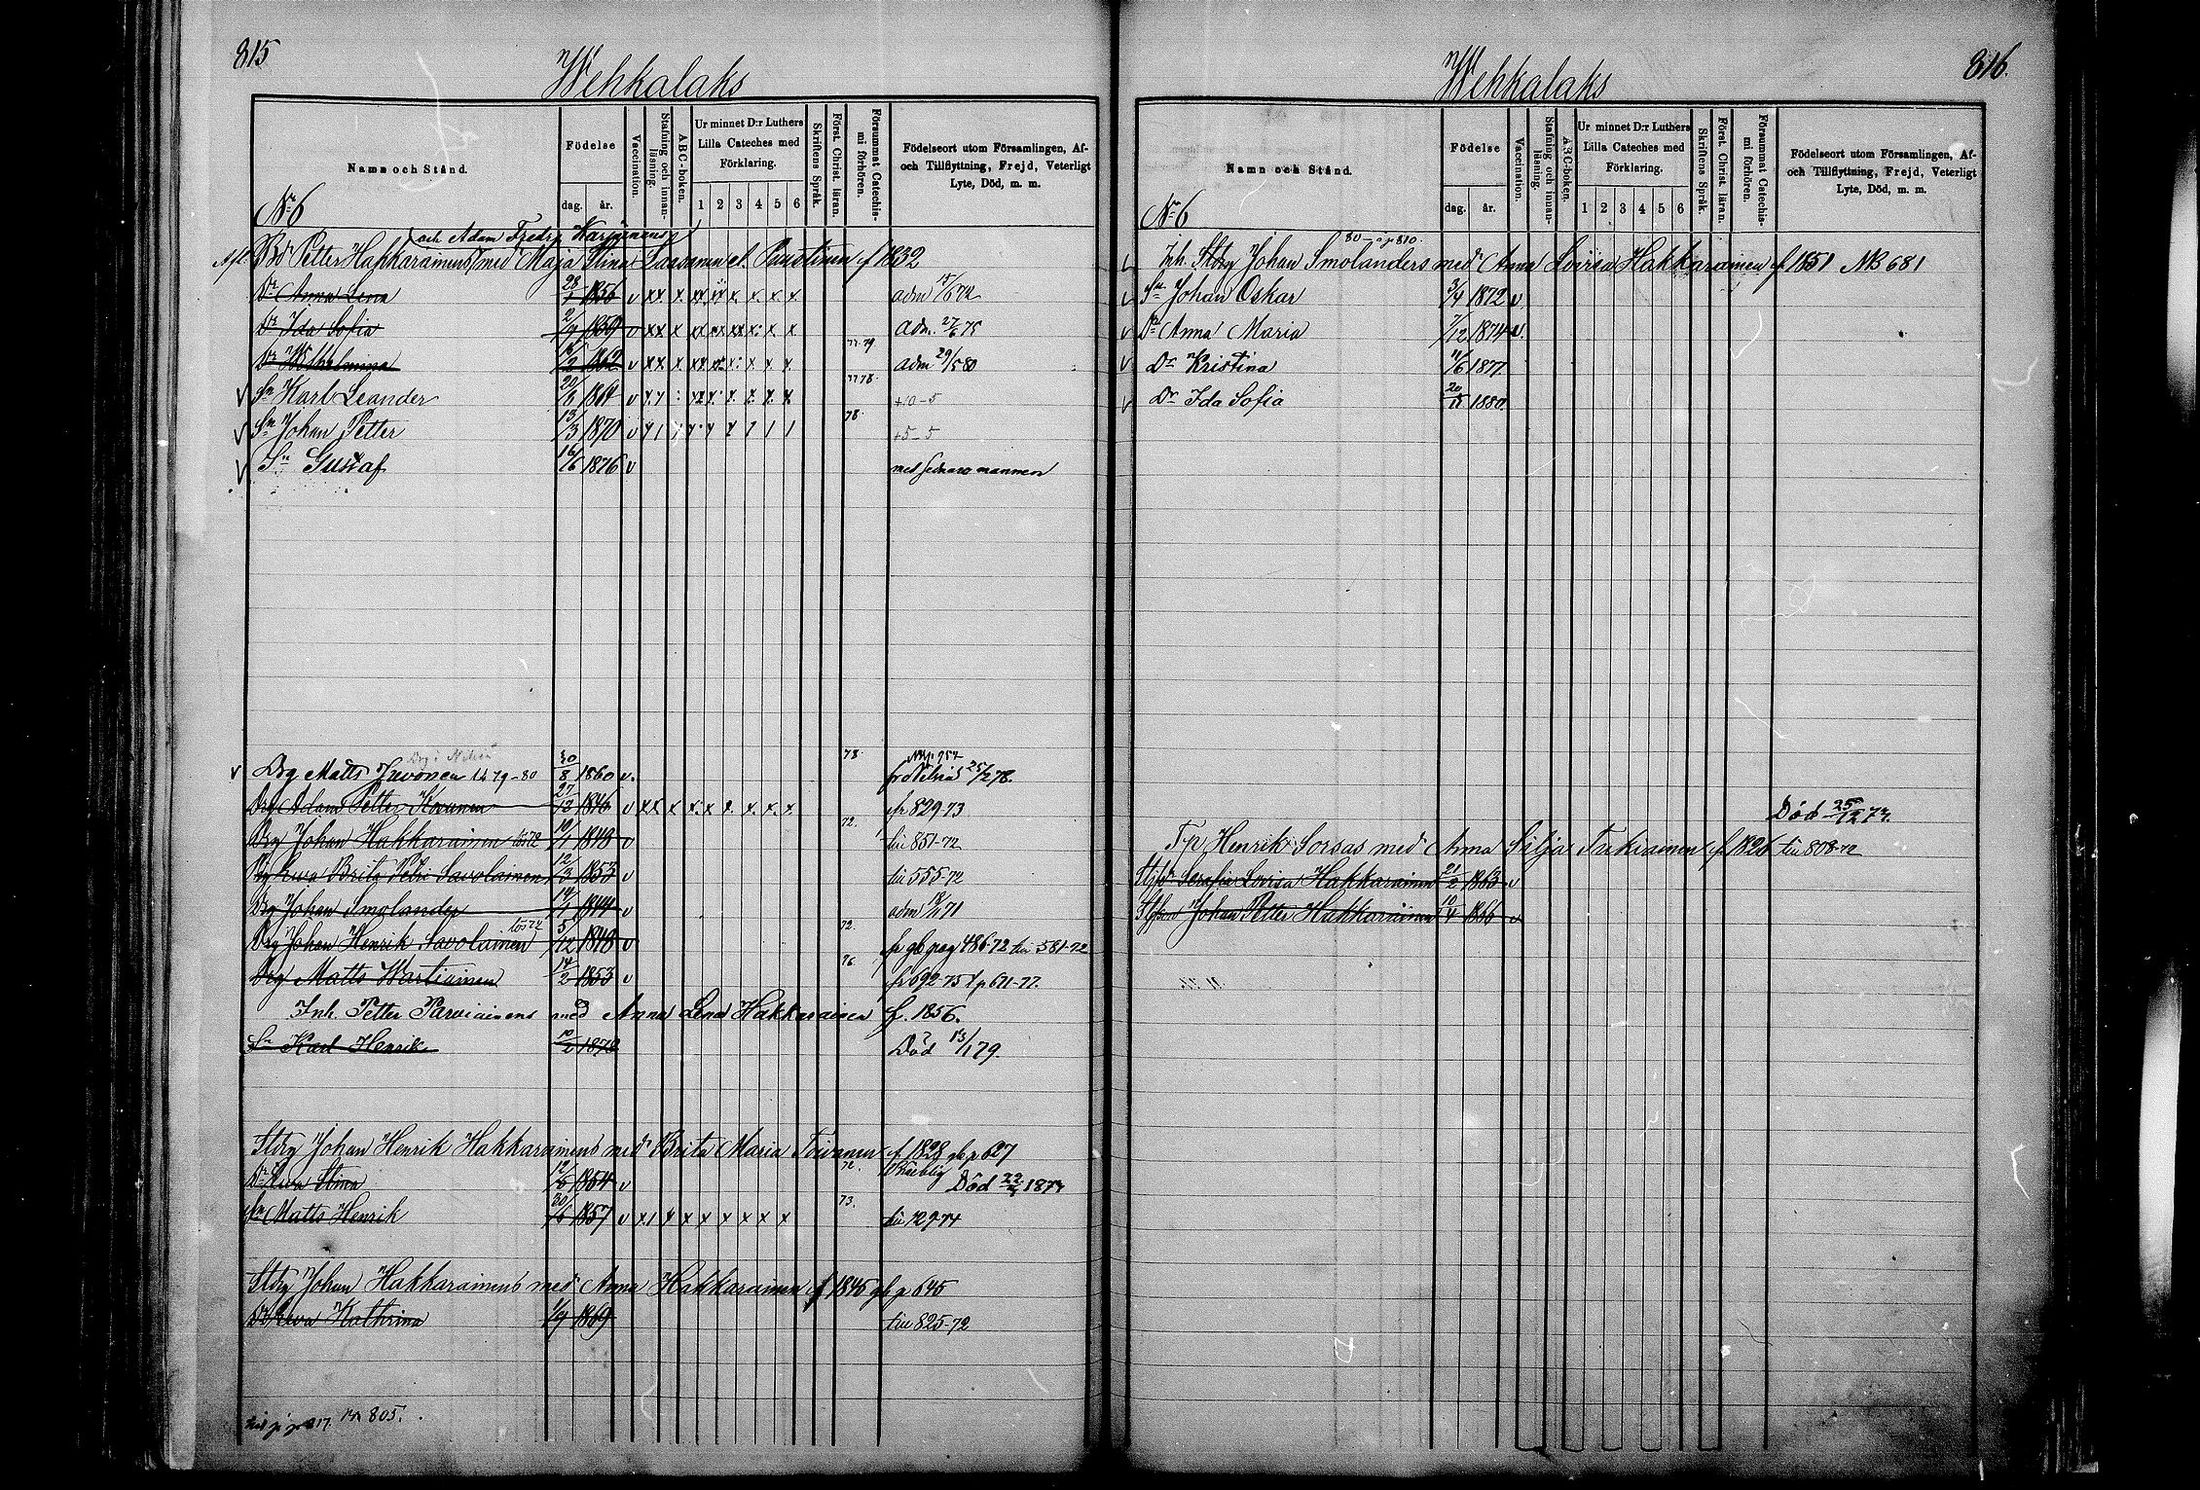 815
Wehkalaks
Namn och Stånd.
Födelse
dag. år.
Vaccination.
Stafning och innan-läsning.
ABC-boken.
Ur minnet D:r Luthers Lilla Cateches med Förklaring.
1 2 3 4 5 6
Skriftens Språk.
Först. Christ. läran.
Försummat Catechis-mi förhören.
Födelseort utom Församlingen, Af- och Tillflyttning, Frejd, Veterligt Lyte, Död, m. m.
No 6
och Adam Fredr.
Petter Hakkarainens med Maja Stina f 1832
Dr Anna Lena 28/1 1856 v adm 15/6 72
Dr Ida Sofia 2/7 1859 v adm. 27/6 75
Dr Wilhelmina 1862 v 77.79 adm 29/5 80
Sn Karl Leander 20/8 1864 v 77 78.
Sn Johan Petter 13/3 1870 v 78.
Sn Gustaf 16/6 1876 v med sednare mannen
Drg Matts Juvonen 79-80 30/8 1860 v. 78. 25/2 78.
Drg Adam Petter Kovanen 27/12 1846 v fr 829-73
Drg Johan Hakkarainen 10/1 1848 v 72. till 851-72
Pig Ewa Brita Petri Savolainen 12/3 1853 v till 555-72
Drg Johan Smolander 14/11 1844 v
Drg Johan Henrik Savolainen 5/12 1848 v 72. fr gb pag 486-72 till 581-72
Drg Matts Wartiainen 14/2 1853 v 76 fr 692-75 t p 671-77.
Inh. Petter Parviainens med Anna Lena Hakkarainen f. 1856.
Sn Karl Henrik 10/2 1878 Död 13/1 79.
Stdrg Johan Henrik Hakkarainens med Brita Maria Toivanen f 1828 gb p 627
Dr Ewa Stina 1854 v 72. Död 1874
Sn Matts Henrik 30/6 1857 v 73. till 129-74
Stdrg Johan Hakkarainens med Anna Hakkarainen f 1845 gb p 645
Dr Ewa Kathrina 1/9 1869 till 825-72
805.
816.
Wehkalaks
Namn och Stånd.
Födelse
dag. år.
Vaccination.
Stafning och innan-läsning.
ABC-boken.
Ur minnet D:r Luthers Lilla Cateches med Förklaring.
1 2 3 4 5 6
Skriftens Språk.
Först. Christ. läran.
Försummat Catechis-mi förhören.
Födelseort utom Församlingen, Af- och Tillflyttning, Frejd, Veterligt Lyte, Död, m. m.
No 6
810.
Inh. Stdrg Johan Smolanders med Anna Lovisa Hakkarainen f 1851 NB 681
Sn Johan Oskar 3/4 1872 v
Dr Anna Maria 7/12 1874 v.
Dr Kristina 11/6 1877.
Dr Ida Sofia 1880.
Död 25/12 74.
Henrik Sorsas med Anna Silja f 1826 till 808-72
Serafia Lovisa Hakkarainen 21/2 1863 v
Johan Petter Hakkarainen 10/4 1866 v